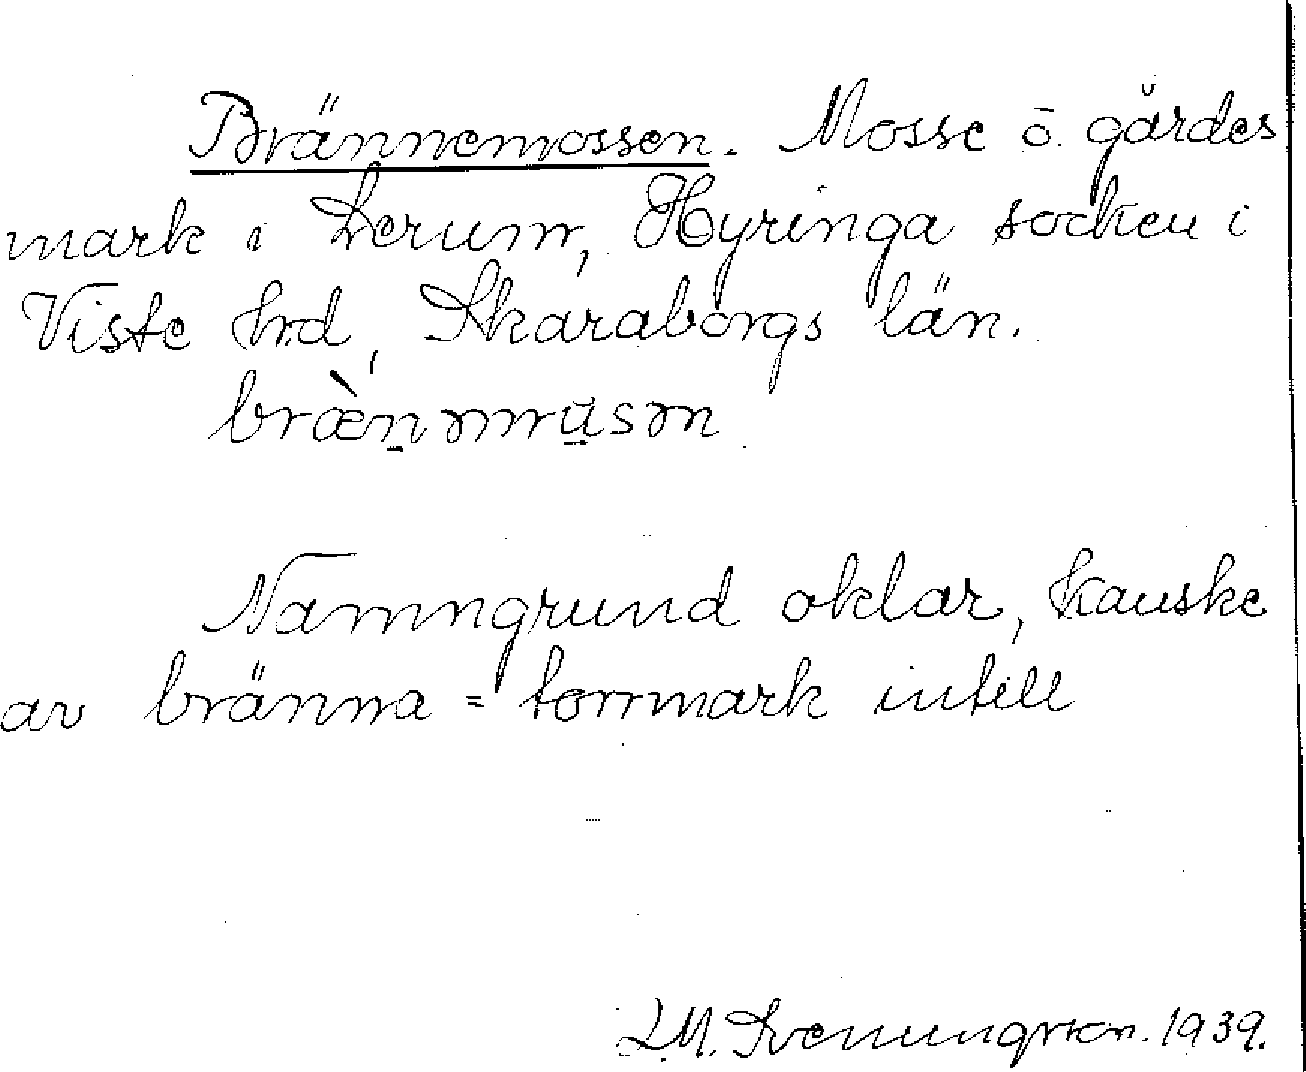 Brännemossen. Mosse ö. gärdes
mark i Lerum, Hyringa socken i
Viste hrd, Skaraborgs län.
Namngrund oklar, kanske
av bränna = torrmark intill
L.M. Svenungsson. 1939.